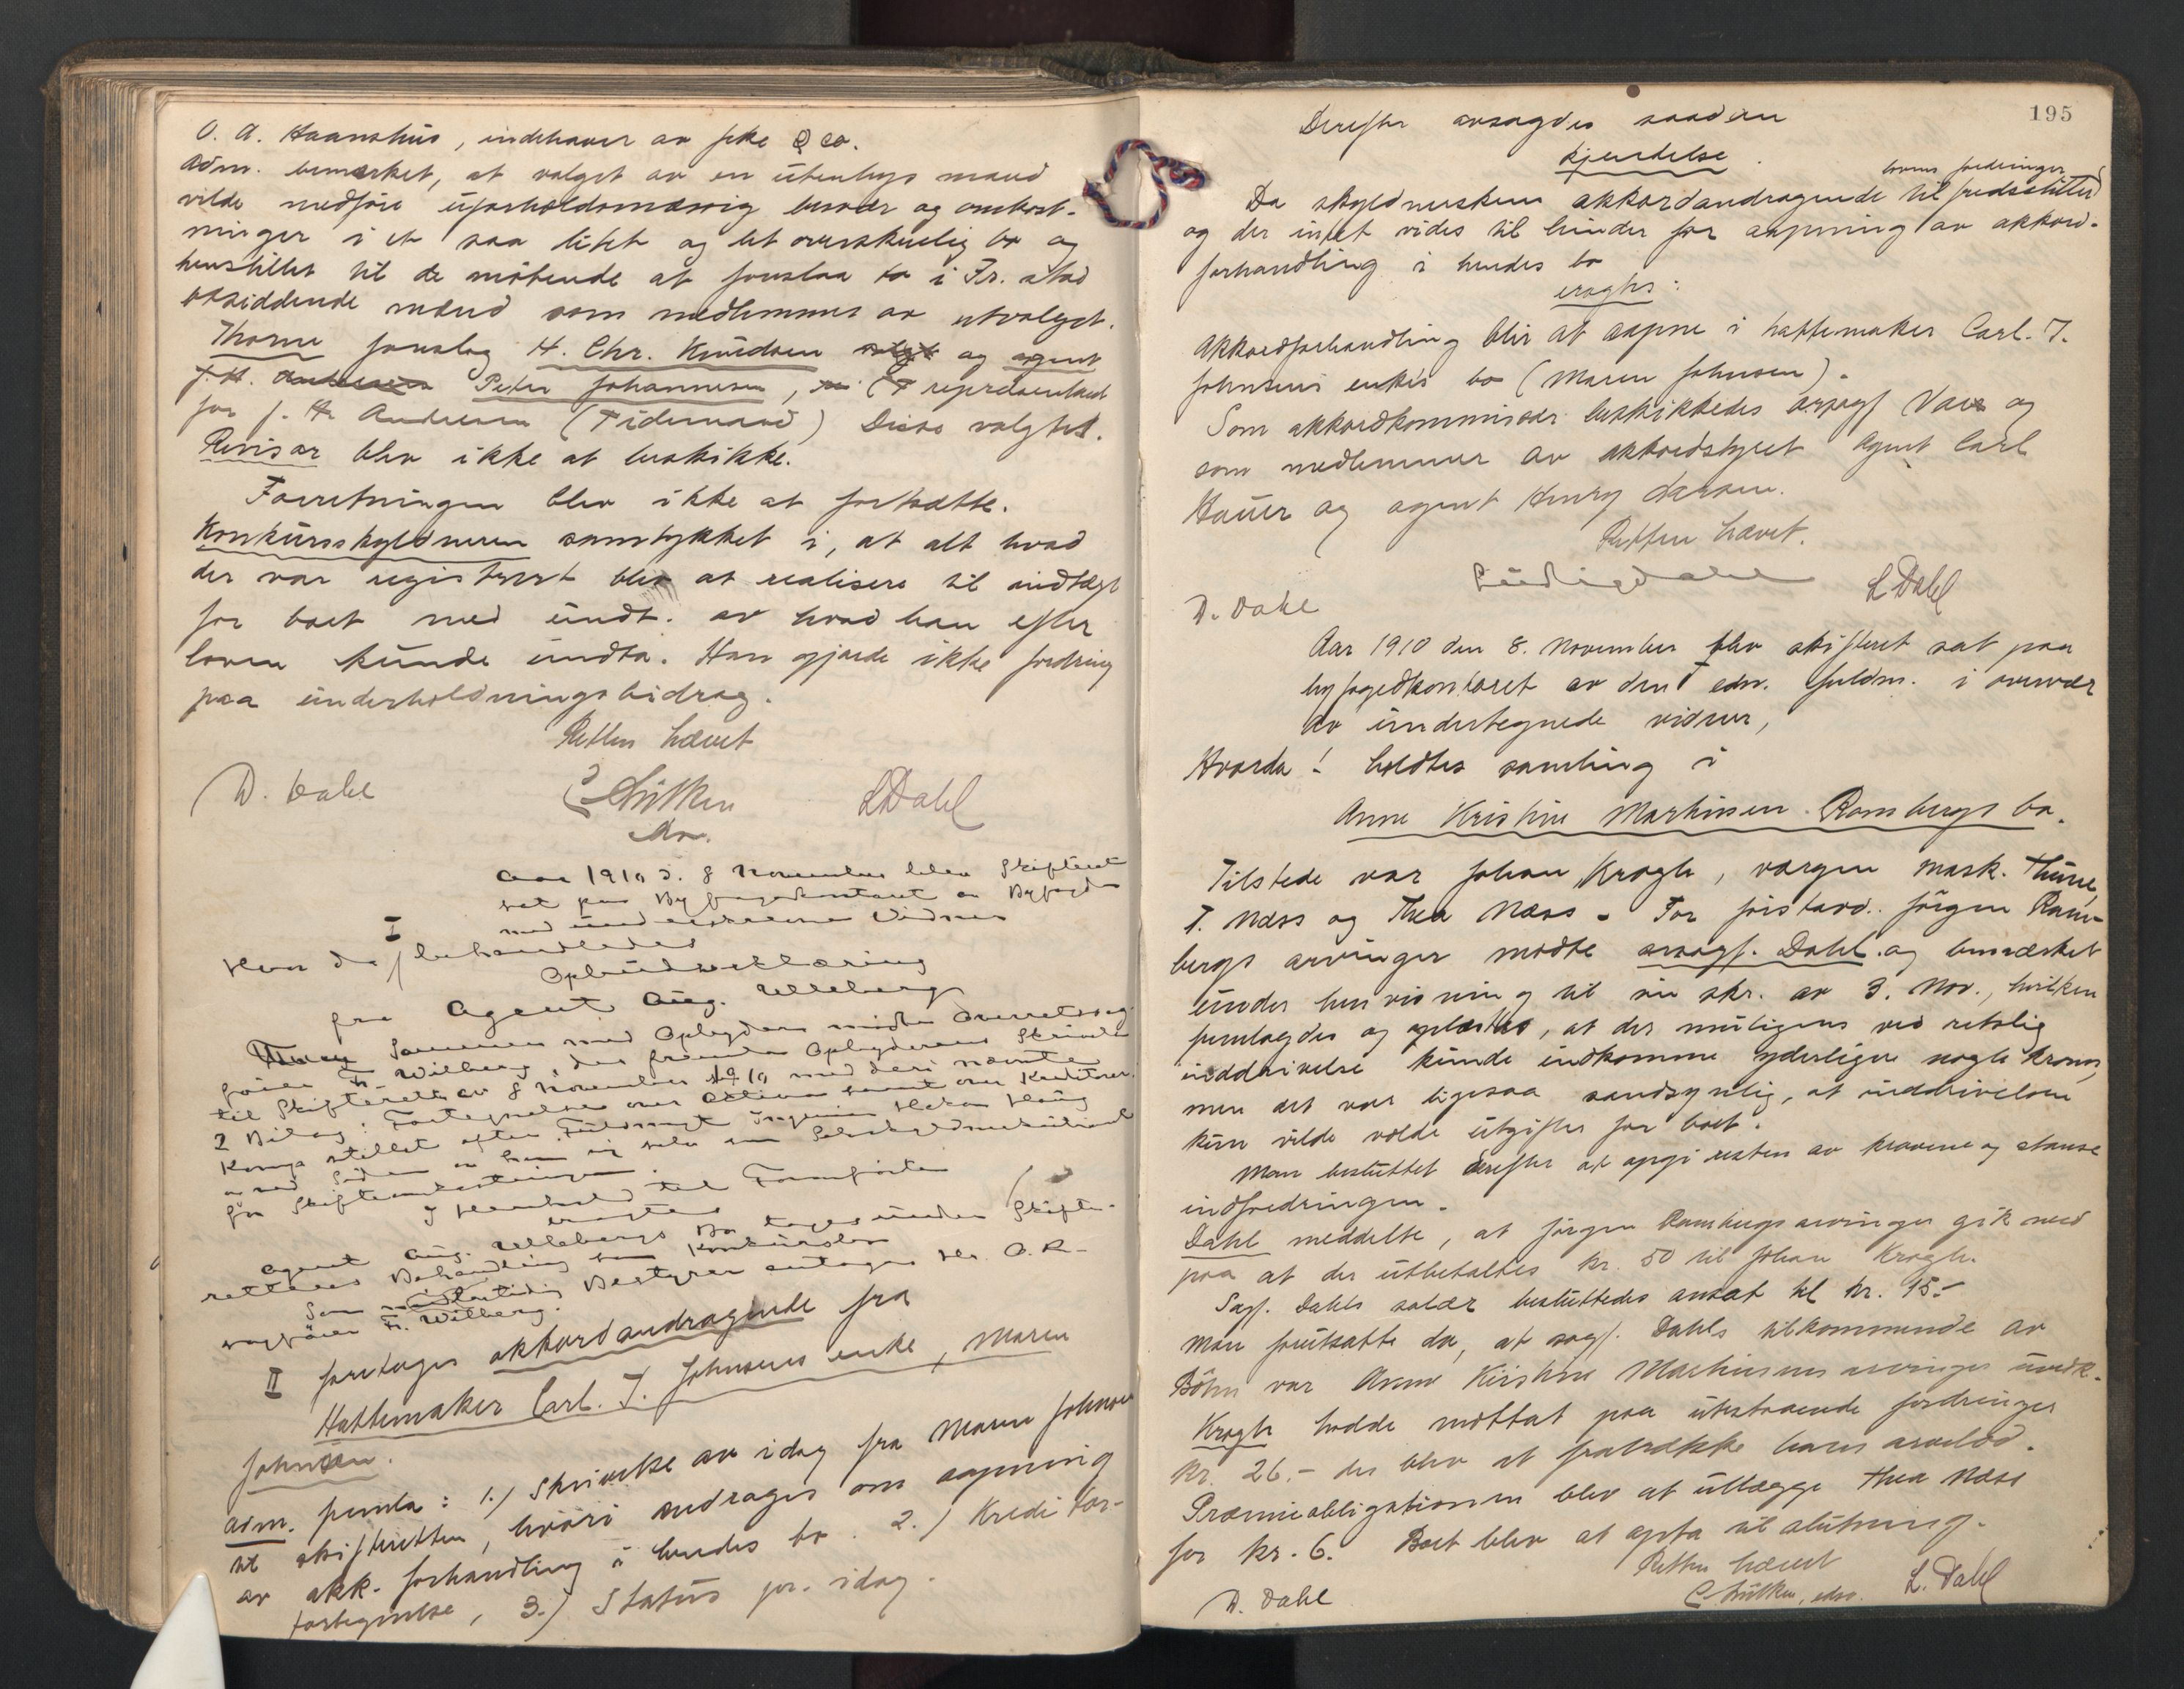 O. A. Haanshus, indehaver av ske & co.
Adm. bemerket, at valget av en utenbys mand
vilde medføre uforholdsmæssig besvær og omkost-
ninger i et saa litet og let overskuelig bo og
henstillet til de møtende at foreslaa to i Fr. stad
bosiddende mænd som medlemmer av utvalget.
Thorne foreslog H. Chr. Knudsen valgt og agent
J. H. Andresen Peter Johannesen, (T repræsentant
for J. H. Andresen (Tidemand) Disse valgtes.
Revisor blev ikke at beskikke.
Forretningen blev ikke at fortsætte.
Konkursskyldneren samtykket i, at alt hvad
der var registrert blev at realisere til indtægt
for boet med undt. av hvad han efter
loven kunde undta. Han gjorde ikke fordring
paa underholdningsbidrag.
Retten hævet
D. Dahl
C Lütken
L Dahl
Aar 1910 d. 8 November blev Skifteret
sat paa Byfogedkontoret av Byfogden
med undertegnede Vidner
Hvorda
I
behandledes
Opbudserklæring
fra Agent Aug. Ulleberg
Sammen med Opbyderen mødte Overretssag-
fører Fr. Wilberg, der fremla Opbyderens Skrivelse
til Skifteretten av 8 November 1910 med deri nævnte
2 Bilag: Fortegnelse over Aktiva samt over Kreditorer.
for Skifteomkostningen.
I Henhold til Foranførte
eragtes
Agent Aug. Ullebergs Bo tages under Skifte-
rettens Behandling som Konkursbo
Som midlertidig Bestyrer antages Hr. O.R-
sagfører Fr. Wilberg.
II foretages akkordandragende fra
Hattemaker Carl. J. Johnsens enke, Maren
Johnsen.
Adm. fremla: 1.) Skrivelse av idag fra Maren Johnsen
til skifteretten, hvori andrages om aapning
av akk. forhandling i hendes bo. 2.) Kreditor-
fortegnelse, 3.) Status pr. idag.
195
Derefter avsagdes saadan
kjendelse.
Da skyldnerskens akkordandragende til fredsstiller
lovens fordringer
og der intet vides til hinder for aapning av akkord-
forhandling i hendes bo
eragtes:
Akkordforhandling blir at aapne i hattemaker Carl. J.
Johnsens enkes bo (Maren Johnsen).
Som akkordkommissær beskikkedes orsagf. Vaer og
som medlemmer av akkordstyret agent Carl
Hauer og agent Henry Larsen.
Retten hævet.
D. Dahl
L Dahl
Aar 1910 den 8. November blev skifteret sat paa
byfogedkontoret av den edsv. fuldm. i overvær
av undertegnede vidner,
Hvorda: holdtes samling i
Anne Kristine Martinsen Rambergs bo.
Tilstede var Johan Krogh, værgen mask. Thune,
T. Næss og Thea Næss. For Jørgen Ram-
bergs arvinger mødte orsagf. Dahl og bemærket
under henvisning til sin skr. av 3. Nov., hvilken
fremlagdes og oplæstes, at der muligens ved retslig
inddrivelse kunde indkomme yderligere nogle kroner,
men det var ligesaa sandsynlig, at inddrivelsen
kun vilde volde utgifter for boet.
Man besluttet derefter at opgi resten av kravene og stanse
indfordringen.
Dahl meddelte, at Jørgen Rambergs arvinger gik med
paa at der utbetaltes kr. 50 til Johan Krogh.
Sagf. Dahls salær besluttedes ansat til kr. 15.-
Man forutsatte da, at sagf. Dahls tilkommende av
Böhn var Anne Kirstine Martinsens arvinger uvedk.
Krogh hadde mottat paa utestaaende fordringer
kr. 26.- der blev at fratrække hans arvelod.
Præmieobligationen blev at utlægge Thea Næss
for kr. 6. Boet blev at opta til slutning.
Retten hævet
D. Dahl
C Lütken, edsv.
L. Dahl